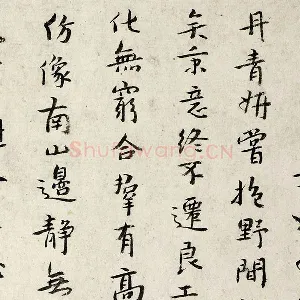 丹青妍嘗抱野間
矣秉意終不遷良工
化無窮合群有高
仿像南山邊靜無
Shufawang.CN